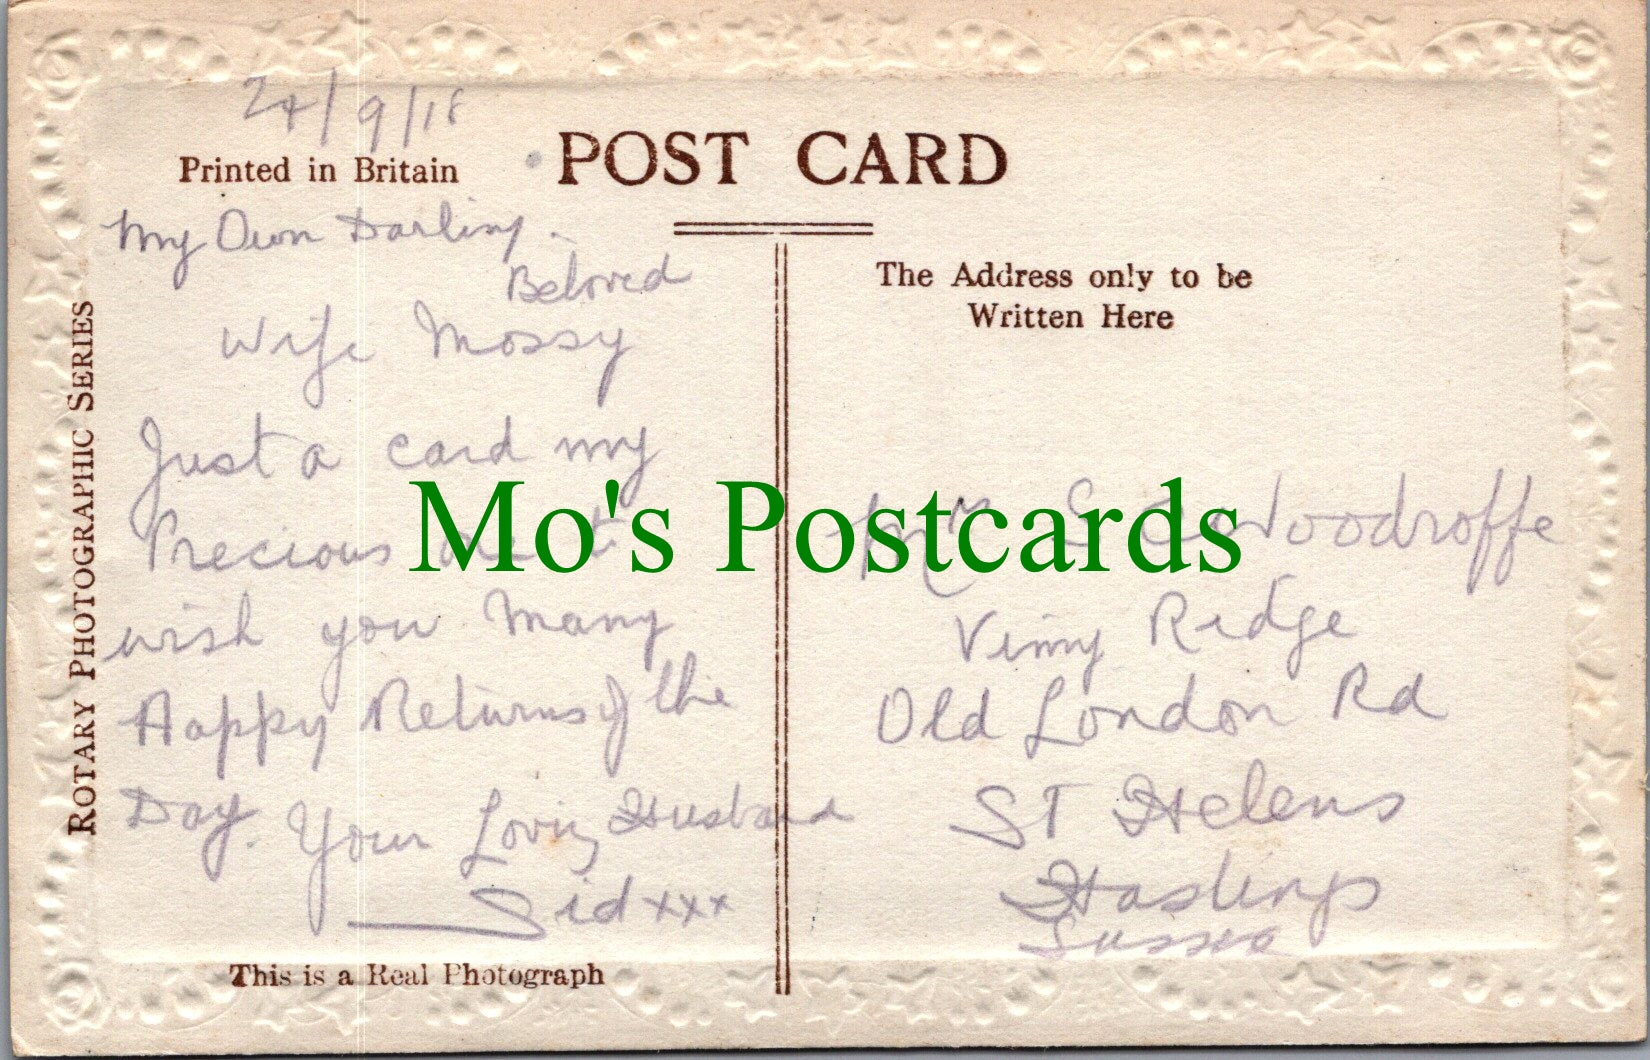 24/9/18
Printed in Britain
POST CARD
My Own Darling.
Beloved
Wife Mossy
Just a card my
Precious
wish you Many
Happy Returns of the
Day. Your Loving Husband
Sid xxx
ROTARY PHOTOGRAPHIC SERIES
This is a Real Photograph
The Address only to be
Written Here
Mrs S Woodroffe
Vimy Ridge
Old London Rd
ST Helens
Hastings
Sussex
Mo's Postcards